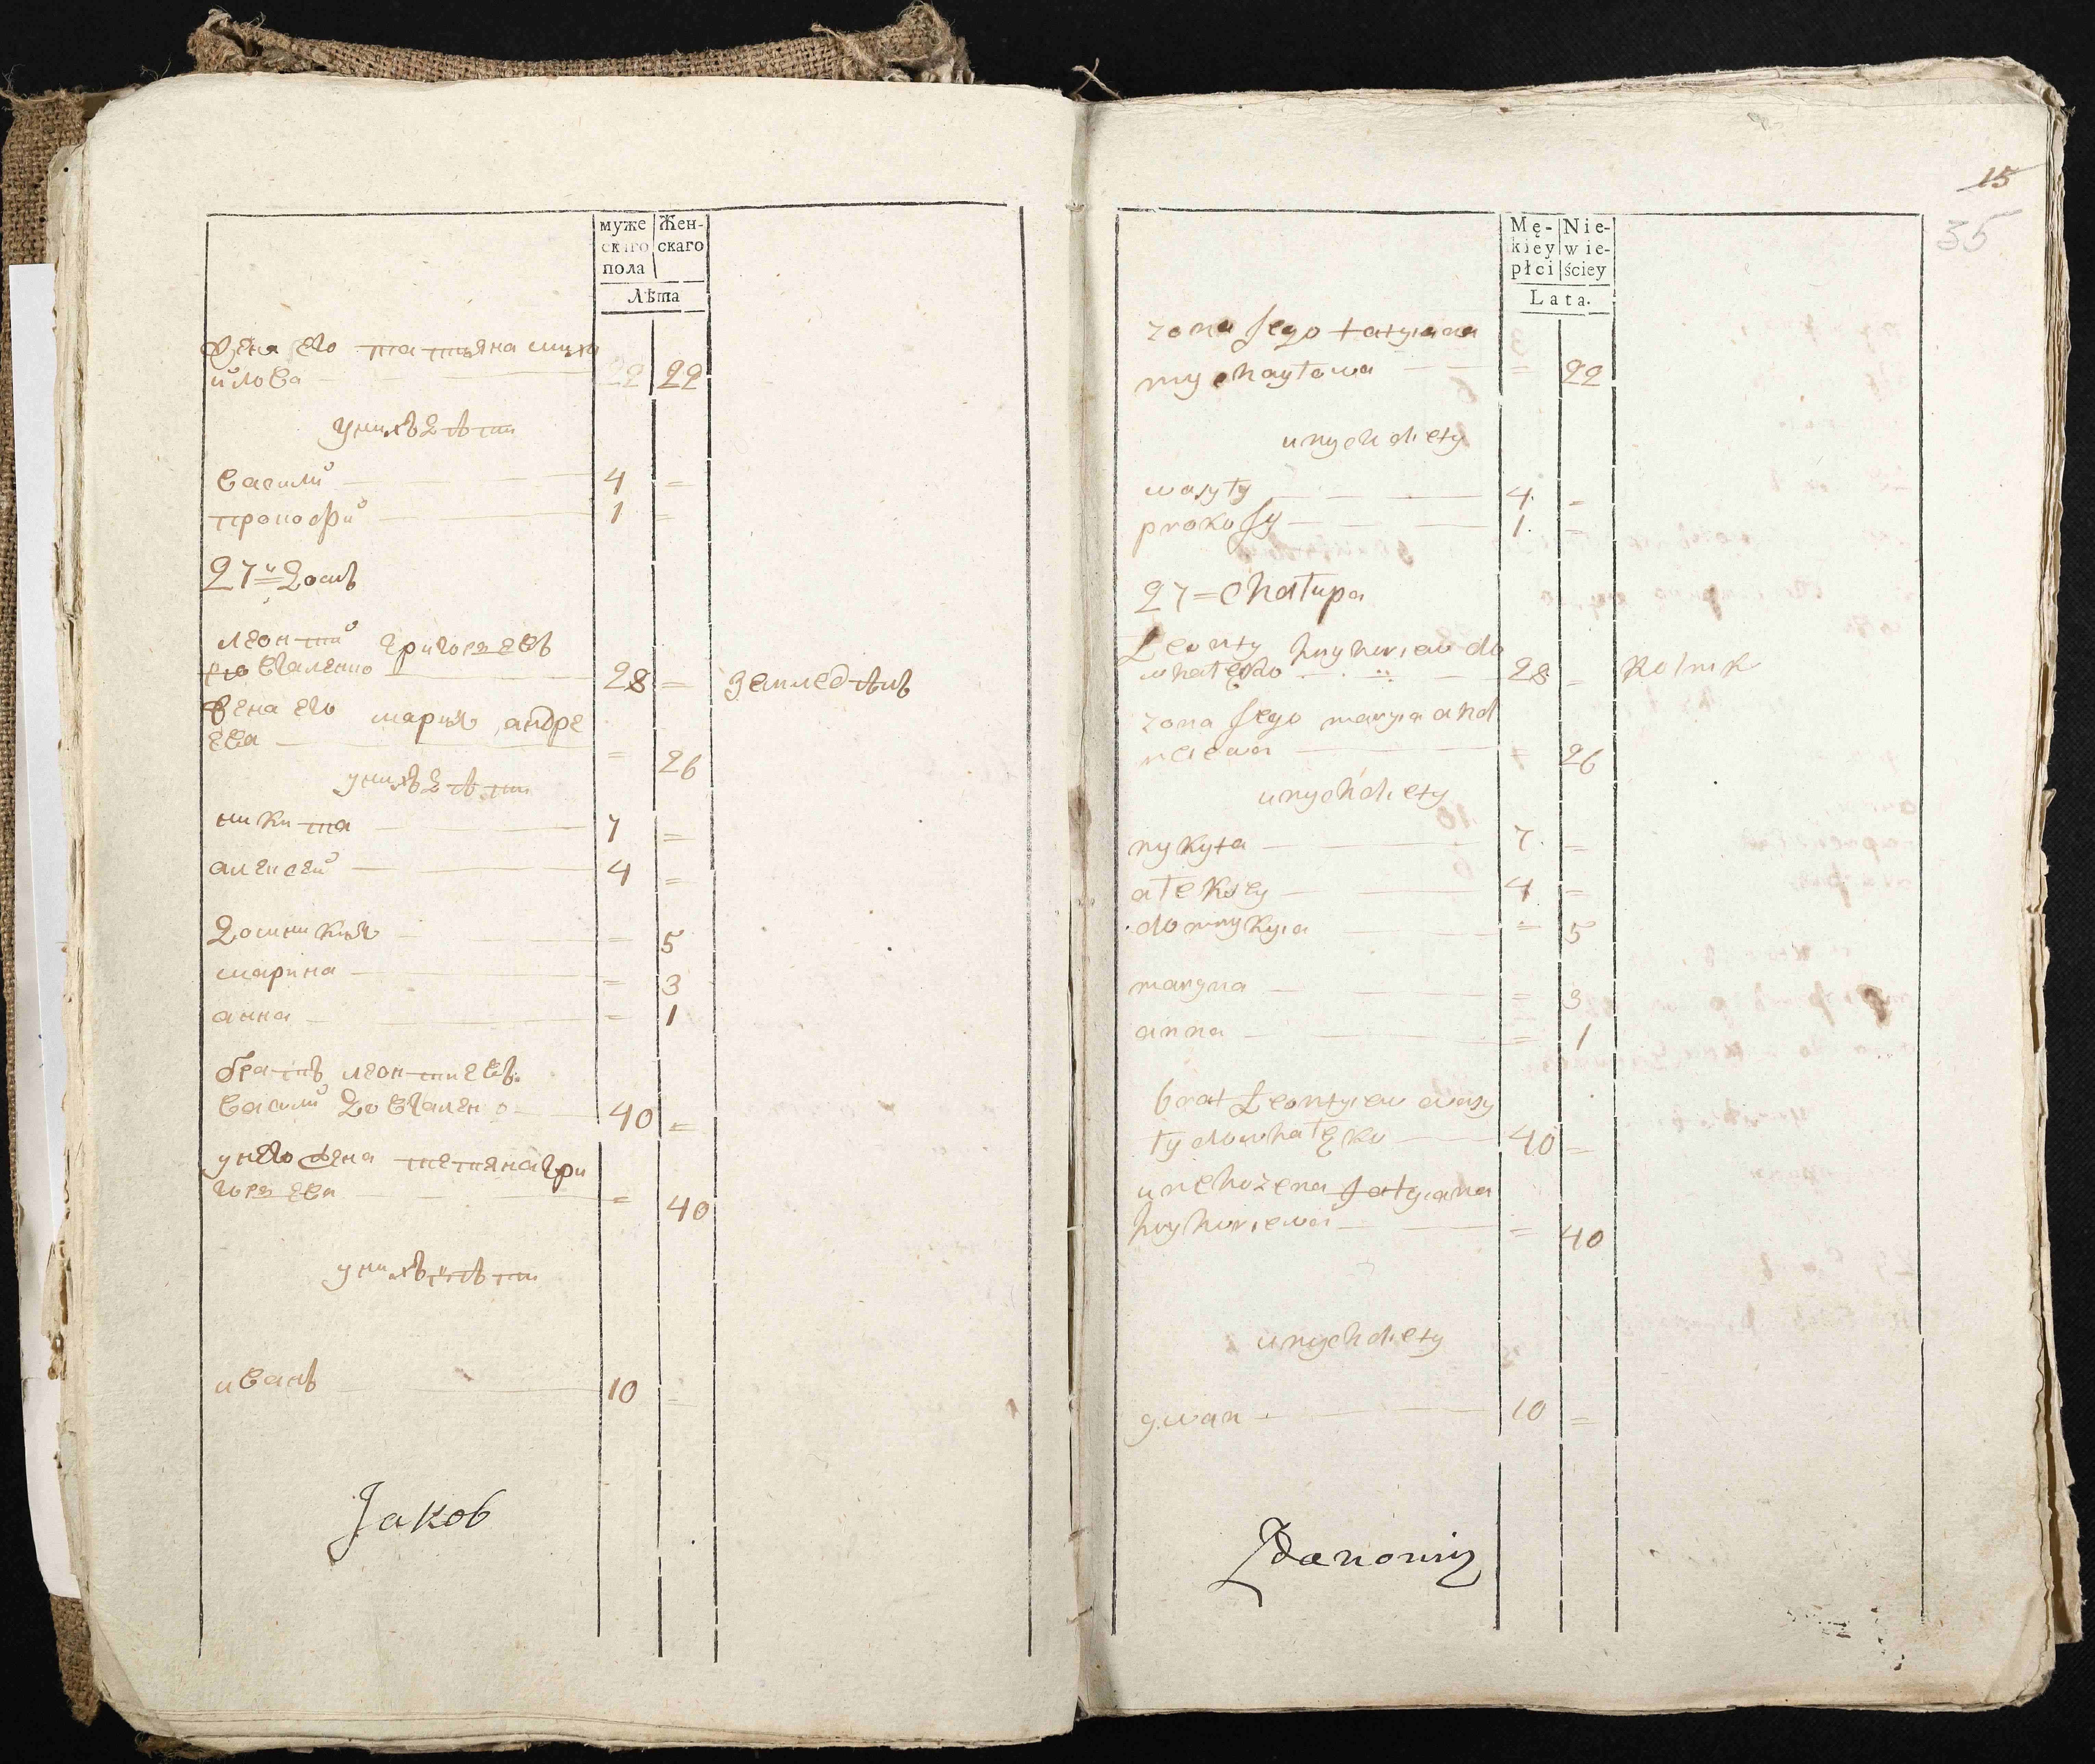 муже Жен-
скаго скаго
пола
Лѣта
Жена Его татияна миха
илова 22 22
унихъ дѣти
Василий 4 =
прокофий 1 =
27й домъ
леонтий григориевъ
довгаленко 28 = земледѣлъ
жена его мария андре
ева = 26
унихъ дѣти
никита 7 =
алексей 4 =
домникия = 5
марина = 3
анна = 1
братъ леонтиевъ
василий довгаленко 40 =
унего жена тетяна гри
гориева = 40
унихъ дѣти
иванъ 10 =
Jakob
15
35
Mę- Nie-
kiey wie-
płci ściey
Lata.
zona Jego tatyiana
mychayłowa = 22
unych diety
wasyły 4. =
prokofy 1. =
27=chałupa
Leonty hryhoriew do
whalęko 28 = Rolnik
zona Jego maryia and
reiewa = 26
unych diety
nykyta 7. =
ałeksey 4 =
domnykyia = 5
maryna = 3
anna = 1
brat Leontyiew wasy
ły dowhałęko 40 =
unehozena tatyiana
hryhoriewa = 40
unych diety
ywan 10 =
Zdanowicz